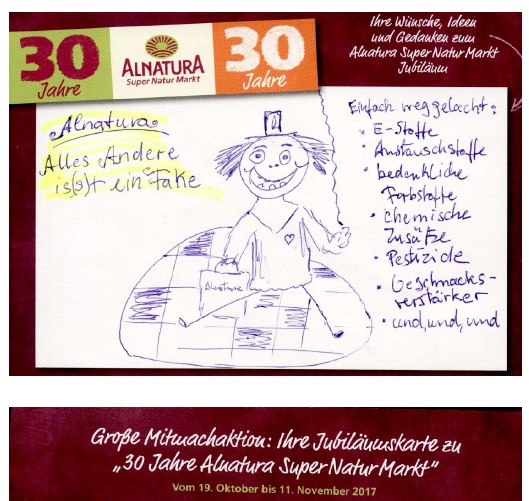 30
Jahre
ALNATURA
Super Natur Markt
30
Jahre
Ihre Wünsche, Ideen
und Gedanken zum
Alnatura Super Natur Markt
Jubiläum
Alnatura
Alles Andere
is(s)t ein Fake
Alnatura
Einfach weggelacht:
• E-Stoffe
• Austauschstoffe
• bedenkliche
Farbstoffe
• Chemische
Zusätze
• Pestizide
• Geschmacks-
verstärker
• und, und, und
Große Mitmachaktion: Ihre Jubiläumskarte zu
„30 Jahre Alnatura Super Natur Markt“
Vom 19. Oktober bis 11. November 2017